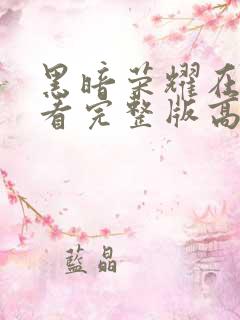 黑暗荣耀在
看完整版高
蓝晶